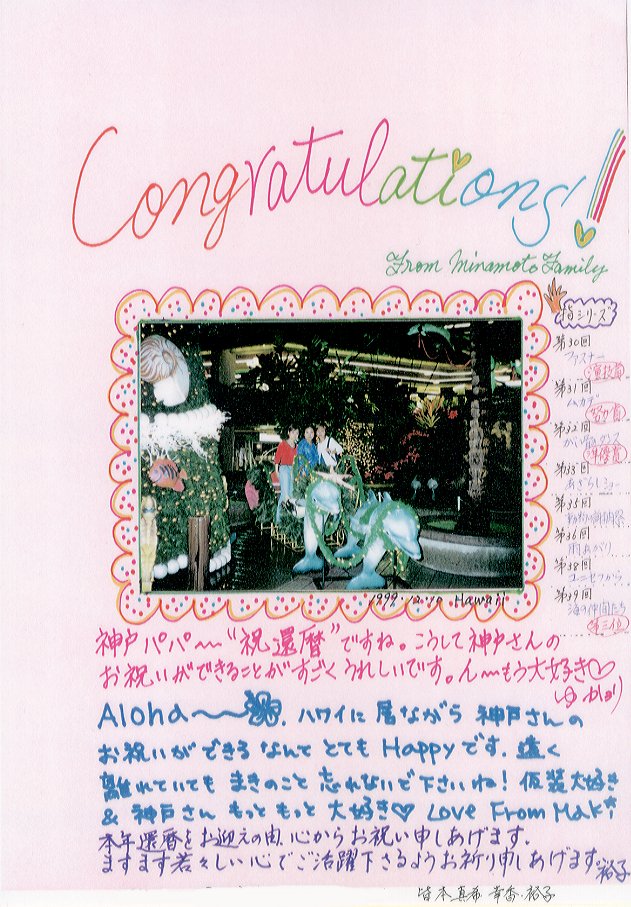 Congratulations!
From Minamoto Family
指シリーズ
第30回
ファスナー
演技賞
第31回
ムカデ
努力賞
第32回
準優賞
第33回
あざらしショー
第35回
動物謝肉祭
第36回
雨あがり
第38回
ユニセフから
第39回
海の仲間たち
第三位
1999.12.30 Hawaii
神戸パパ〜“祝還暦”ですね。こうして神戸さんの
お祝いができることがすごくうれしいです。ん〜もう大好き♡
Aloha〜 . ハワイに居ながら 神戸さんの
お祝いができるなんて とても Happyです. 遠く
離れていても まきのこと 忘れないで下さいね! 仮装大好き
& 神戸さん もっともっと 大好き♡ Love From Maki
本年還暦をお迎えの由、心からお祝い申しあげます.
ますます若々しい心でご活躍下さるようお祈り申しあげます。裕子
皆本真希 幸香・裕子